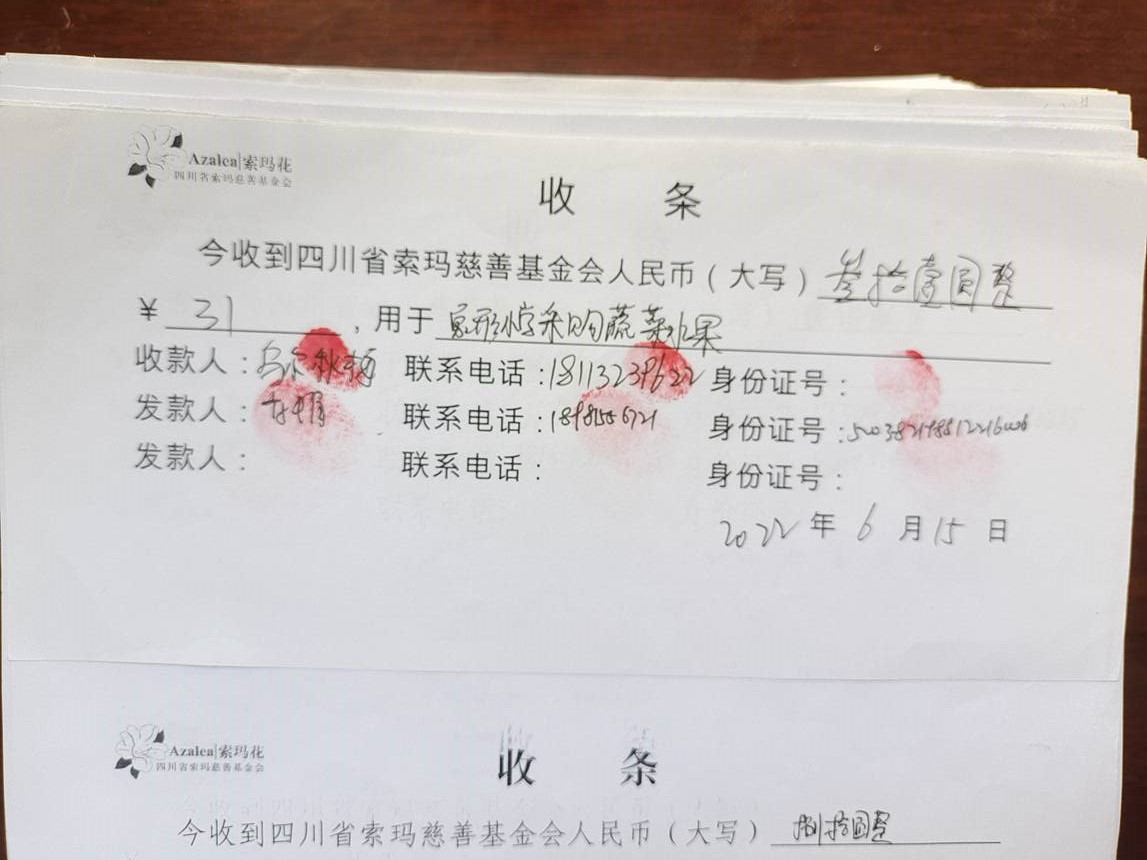 Azalea|索玛花
四川省索玛慈善基金会
收 条
今收到四川省索玛慈善基金会人民币（大写）叁拾壹圆整
￥ 31 ，用于 采购蔬菜水果
收款人： 联系电话：18113239622 身份证号：
发款人： 联系电话： 身份证号：
发款人： 联系电话： 身份证号：
2022 年 6 月 15 日
Azalea|索玛花
四川省索玛慈善基金会
收 条
今收到四川省索玛慈善基金会人民币（大写）捌拾圆整